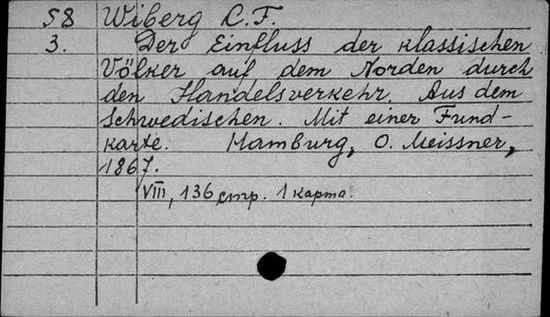 58 Wiberg C.F.
3. Der Einfluss der klassischen
Völker auf dem Norden durch
den Handelsverkehr. Aus dem
Schwedischen. Mit einer Fund-
karte. Hamburg, O. Meissner,
1867.
VIII, 136 стр. 1 карта.